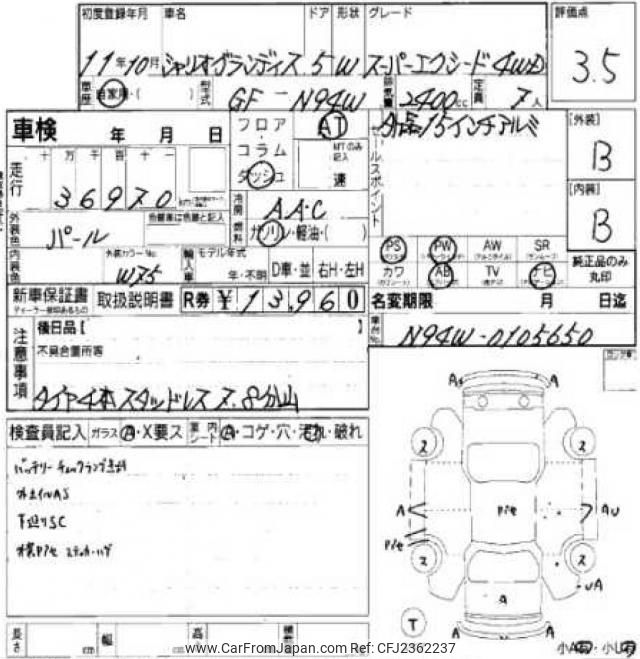 初度登録年月 車名 ドア 形状 グレード 評価点
11年10月 シャリオグランディス 5 W スーパーエクシード 4WD 3.5
車歴 自家用・( ) 型式 GF - N94W 排気量 2400cc 定員 7人
車検 年 月 日
フロア AT
コラム MTのみ記入
ダッシュ 速
セールスポイント
外品15インチアルミ
[外装] B
走行 十 万 千 百 十 一
36970 km
冷房 AAC
[内装] B
外装色 パール 色替車は元色と記入
燃料 ガソリン・軽油・( )
PS PW AW SR
カワ AB TV ナビ
純正品のみ丸印
内装色 外装カラーNo. W75
輸入車 モデル年式 年・不明 D車・並 右H・左H
新車保証書 取扱説明書 R券 ¥13,960
ディーラー捺印あるもの
名変期限 月 日迄
車台No. N94W-0105650
注意事項
後日品[ ]
不具合箇所等
タイヤ4本スタッドレス ヌ.8分山
検査員記入 ガラス A・X要ス 内張シート A・コゲ・穴・汚れ・破れ
バッテリーチェックランプ点灯
ホイルAS
下廻りSC
A A
2 2
A P/e AU
P/e
2 2
UA
A
T
A A
長さ cm 幅 cm 高さ
www.CarFromJapan.com Ref: CFJ2362237
小A 小U